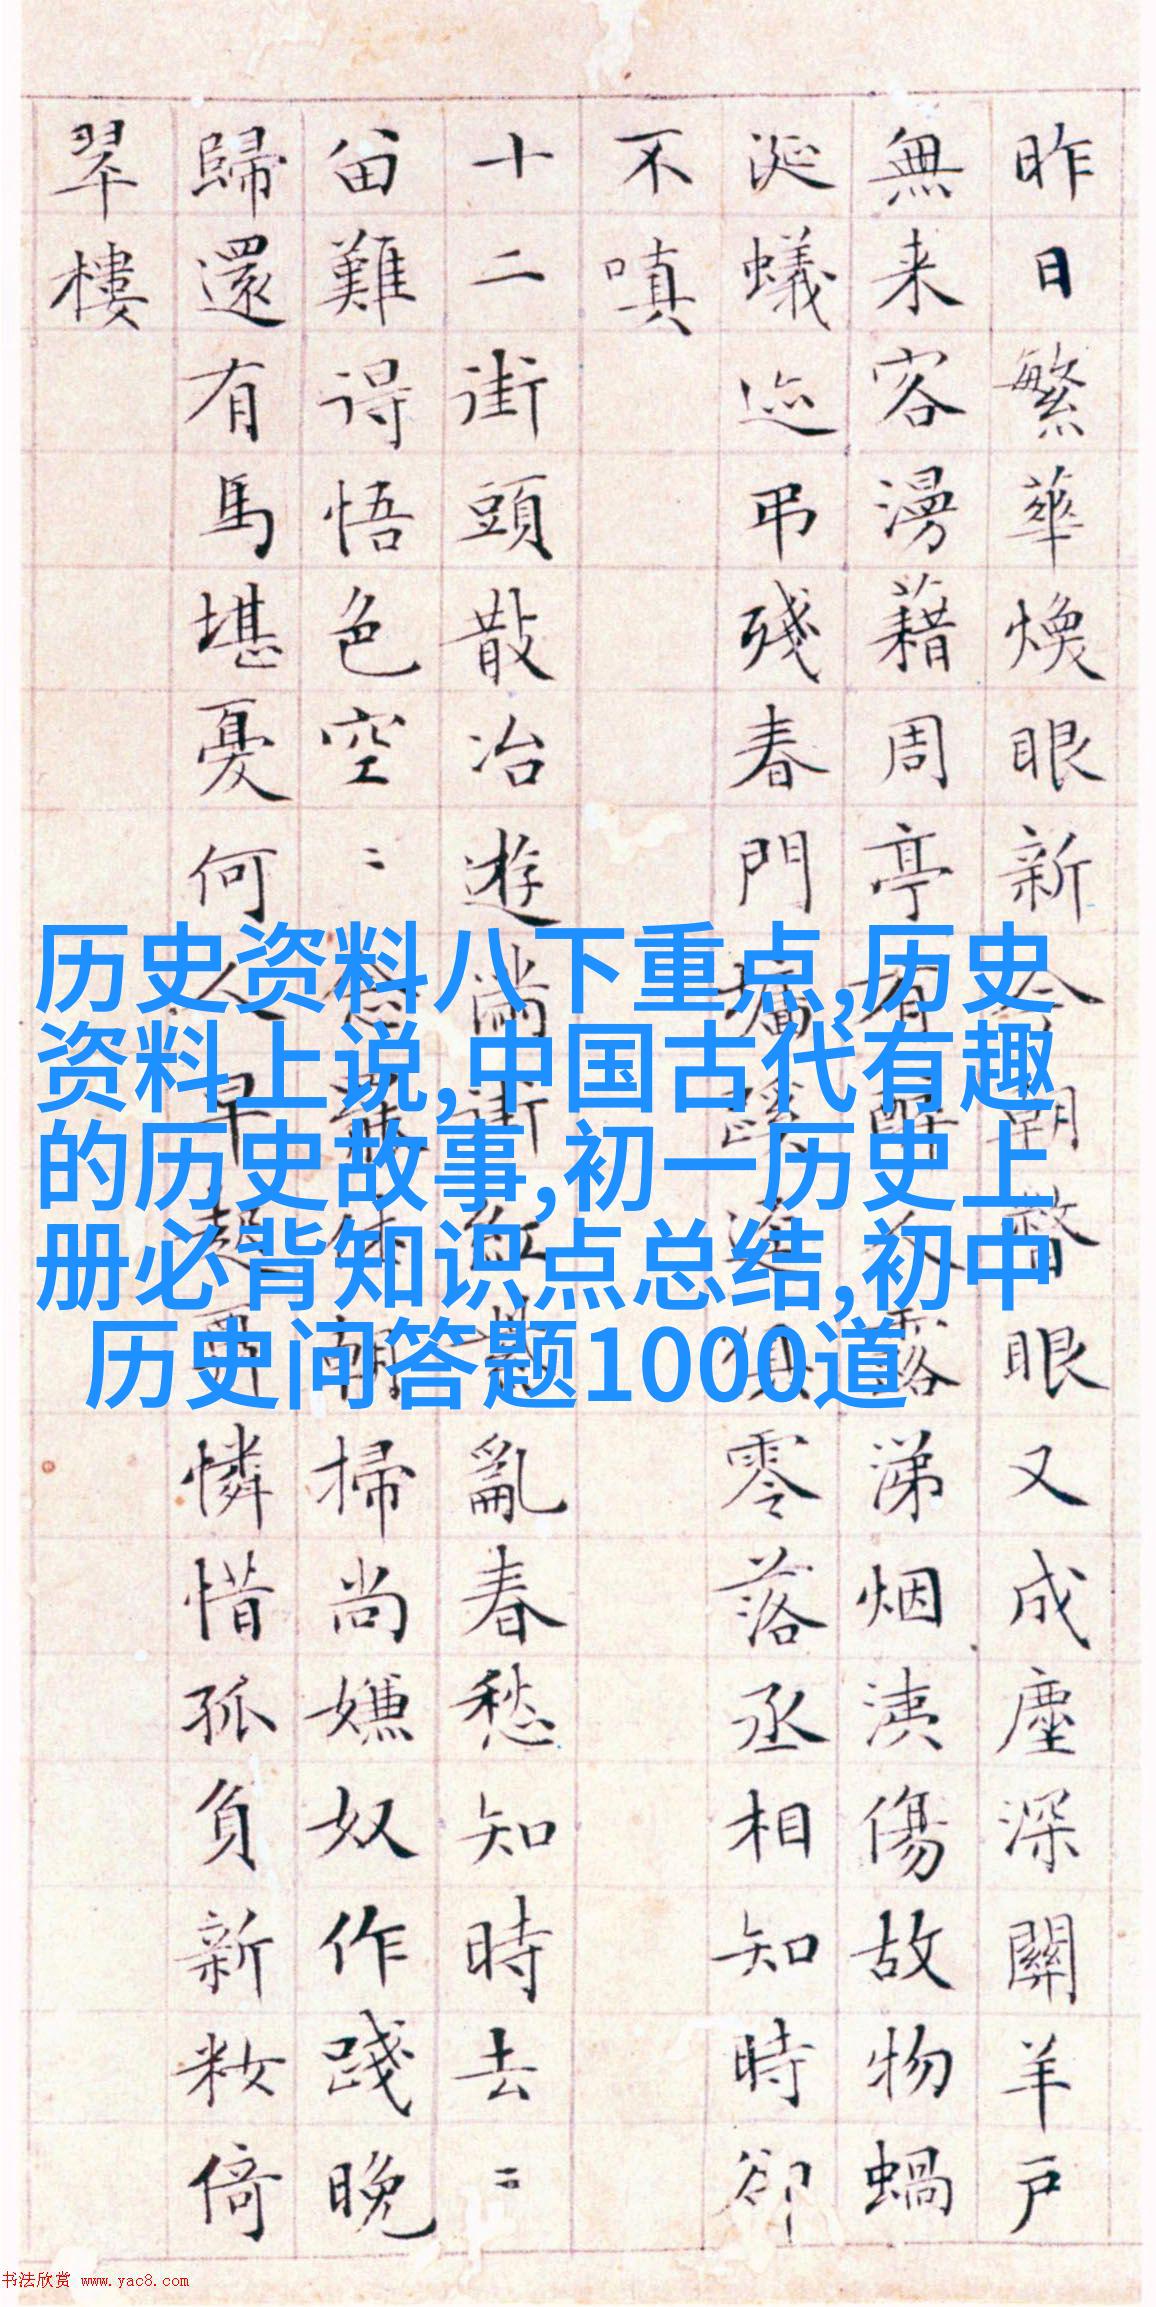 昨日繁華煥眼新今朝瞥眼又成塵深關羊戶
無来客漫藉周亭有醉人露涕烟洟傷故物蝸
涎蟻迹弔殘春門墻蹊逕俱零落丞相知時卻
不嗔
十二街頭散冶遊滿街紅紫亂春愁知時去〻
留難得悟色空〻 休朝掃尚嫌奴作踐晚
歸還有馬堪憂何人早起 憐惜孤負新粧倚
翠樓
历史资料八下重点,历史
资料上说,中国古代有趣
的历史故事,初一历史上
册必背知识点总结,初中
历史问答题1000道
书法欣赏 www.yac8.com